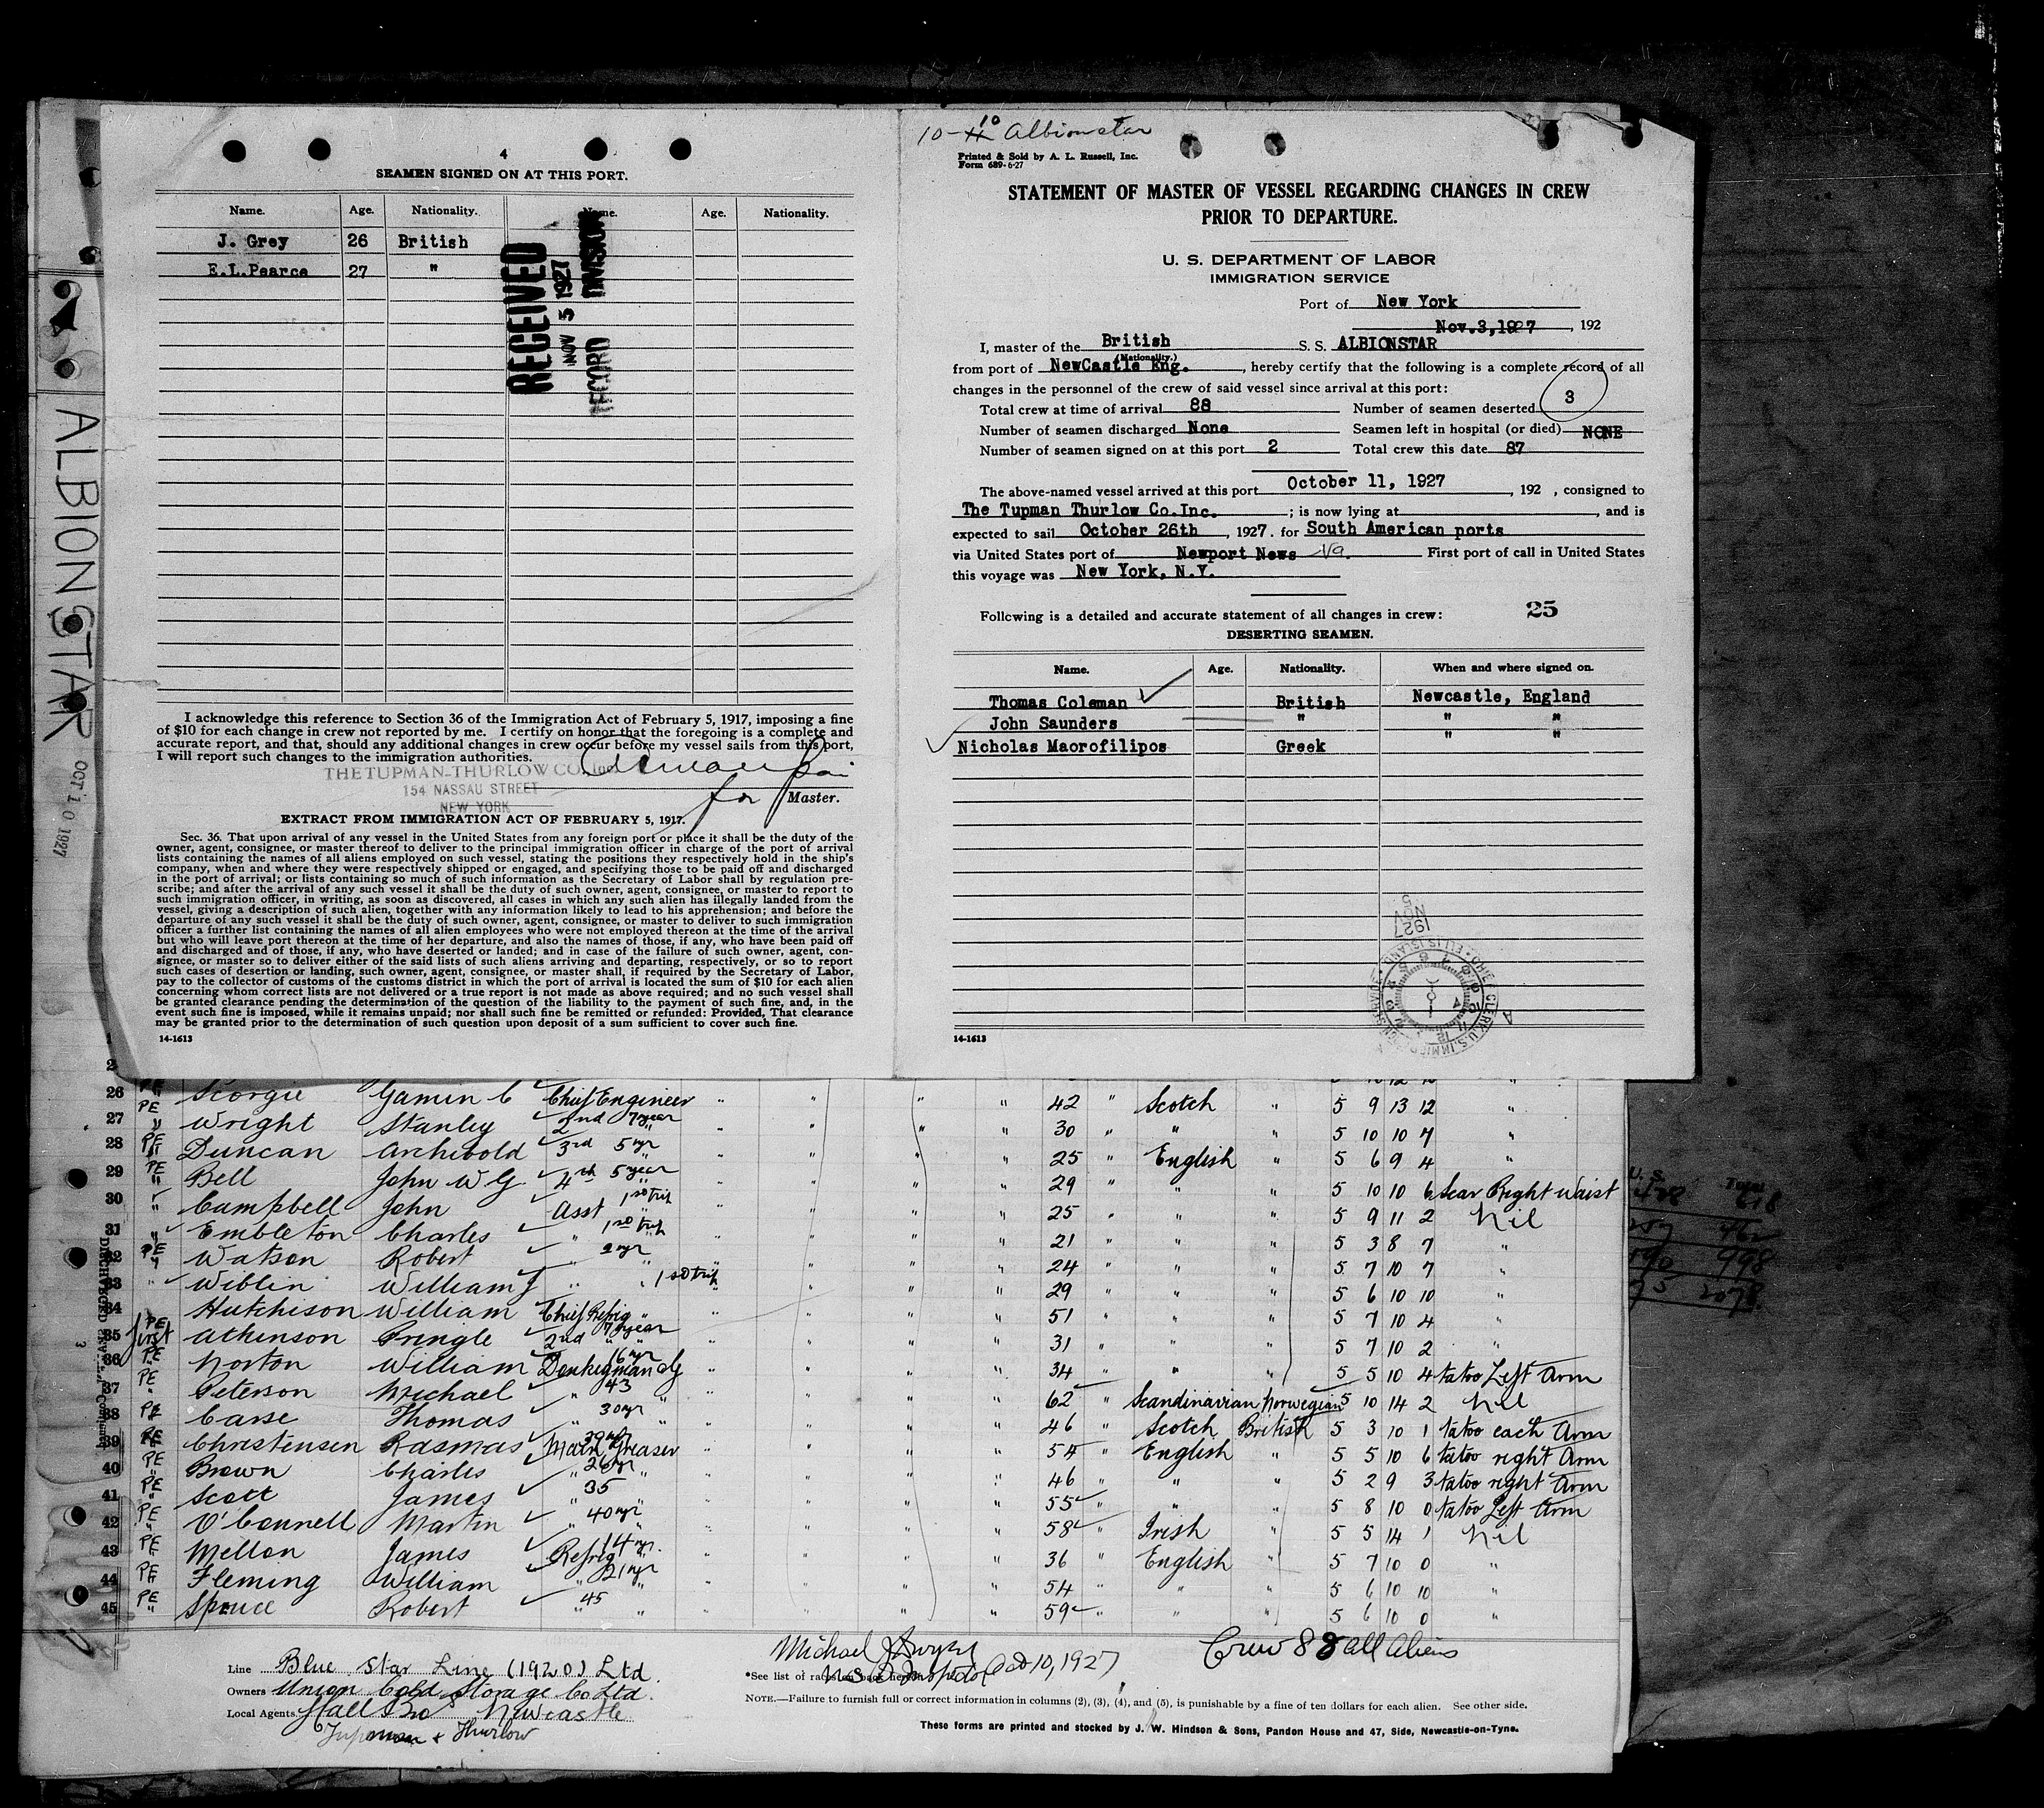 ALBIONSTAR
OCT 10 1927
4
SEAMEN SIGNED ON AT THIS PORT.
Name. Age. Nationality. Name. Age. Nationality.
J. Grey 26 British
E.L.Pearce 27 "
RECEIVED
NOV 5 1927
RECORD DIVISION
I acknowledge this reference to Section 36 of the Immigration Act of February 5, 1917, imposing a fine
of $10 for each change in crew not reported by me. I certify on honor that the foregoing is a complete and
accurate report, and that, should any additional changes in crew occur before my vessel sails from this port,
I will report such changes to the immigration authorities.
THE TUPMAN-THURLOW CO. Inc
154 NASSAU STREET
NEW YORK
for Master.
EXTRACT FROM IMMIGRATION ACT OF FEBRUARY 5, 1917.
Sec. 36. That upon arrival of any vessel in the United States from any foreign port or place it shall be the duty of the
owner, agent, consignee, or master thereof to deliver to the principal immigration officer in charge of the port of arrival
lists containing the names of all aliens employed on such vessel, stating the positions they respectively hold in the ship's
company, when and where they were respectively shipped or engaged, and specifying those to be paid off and discharged
in the port of arrival; or lists containing so much of such information as the Secretary of Labor shall by regulation pre-
scribe; and after the arrival of any such vessel it shall be the duty of such owner, agent, consignee, or master to report to
such immigration officer, in writing, as soon as discovered, all cases in which any such alien has illegally landed from the
vessel, giving a description of such alien, together with any information likely to lead to his apprehension; and before the
departure of any such vessel it shall be the duty of such owner, agent, consignee, or master to deliver to such immigration
officer a further list containing the names of all alien employees who were not employed thereon at the time of the arrival
but who will leave port thereon at the time of her departure, and also the names of those, if any, who have been paid off
and discharged and of those, if any, who have deserted or landed; and in case of the failure of such owner, agent, con-
signee, or master so to deliver either of the said lists of such aliens arriving and departing, respectively, or so to report
such cases of desertion or landing, such owner, agent, consignee, or master shall, if required by the Secretary of Labor,
pay to the collector of customs of the customs district in which the port of arrival is located the sum of $10 for each alien
concerning whom correct lists are not delivered or a true report is not made as above required; and no such vessel shall
be granted clearance pending the determination of the question of the liability to the payment of such fine, and, in the
event such fine is imposed, while it remains unpaid; nor shall such fine be remitted or refunded: Provided, That clearance
may be granted prior to the determination of such question upon deposit of a sum sufficient to cover such fine.
14-1613
10-10 Albionstar
Printed & Sold by A. L. Russell, Inc.
Form 689-6-27
STATEMENT OF MASTER OF VESSEL REGARDING CHANGES IN CREW
PRIOR TO DEPARTURE.
U. S. DEPARTMENT OF LABOR
IMMIGRATION SERVICE
Port of New York
Nov.3,1927, 192
I, master of the British S. S. ALBIONSTAR
(Nationality.)
from port of NewCastle Eng., hereby certify that the following is a complete record of all
changes in the personnel of the crew of said vessel since arrival at this port:
Total crew at time of arrival 88 Number of seamen deserted 3
Number of seamen discharged None Seamen left in hospital (or died) NONE
Number of seamen signed on at this port 2 Total crew this date 87
The above-named vessel arrived at this port October 11, 1927, 192 , consigned to
The Tupman Thurlow Co.Inc. ; is now lying at , and is
expected to sail October 26th, 1927. for South American ports
via United States port of Newport News Va. First port of call in United States
this voyage was New York, N.Y.
Following is a detailed and accurate statement of all changes in crew: 25
DESERTING SEAMEN.
Name. Age. Nationality. When and where signed on.
Thomas Coleman British Newcastle, England
John Saunders " " "
Nicholas Maorofilipos Greek " "
1927
NOV
5
14-1613
26 PE Scorgie Gamin C Chief Engineer " " " " 42 " Scotch " 5 9 13 12 "
27 PE Wright Stanley 2nd 7 year " " " " 30 " " " 5 10 10 7 "
28 PE Duncan Archibold 3rd 5 yr " " " " 25 " English " 5 6 9 4 "
29 PE Bell John W G 4th 5 year " " " " 29 " " " 5 10 10 6 Scar Right Waist
30 Campbell John Asst 1st trip " " " " 25 " " " 5 9 11 2 Nil
31 Embleton Charles " 1st trip " " " " 21 " " " 5 3 8 7 "
32 PE Watson Robert " 2 yr " " " " 24 " " " 5 7 10 7 "
33 Wiblin William J " 1st trip " " " " 29 " " " 5 6 10 10 "
34 Hutchison William Chief Refrig " " " " 51 " " " 5 7 10 4 "
35 PE first Atkinson Pringle 2nd 7 year " " " " 31 " " " 5 7 10 2 "
36 PE Norton William Donkeyman 16 yr " " " " 34 " " " 5 5 10 4 tatoo Left Arm
37 PE Peterson Michael " 43 " " " " 62 " Scandinavian Norwegian 5 10 14 2 Nil
38 PE Carse Thomas " 30 yr " " " " 46 " Scotch British 5 3 10 1 tatoo each Arm
39 PE Christensen Rasmas Main Greaser " " " " 54 " English " 5 5 10 6 tatoo right Arm
40 PE Brown Charles " 26 yr " " " " 46 " " " 5 2 9 3 tatoo right Arm
41 PE Scott James " 35 " " " " 55 " " " 5 8 10 0 tatoo Left Arm
42 PE O'Connell Martin " 40 yr " " " " 58 " Irish " 5 5 14 1 Nil
43 PE Mellon James Refrig 14 yr. " " " " 36 " English " 5 7 10 0 "
44 PE Fleming William " 21 yr " " " " 54 " " " 5 6 10 10 "
45 PE Spence Robert " 45 " " " " 59 " " " 5 6 10 0 "
U. S. Total
618
462
998
2078
Line Blue Star Line (1920) Ltd.
Owners Union Cold Storage Co Ltd.
Local Agents. Hall Bro Newcastle
Tupman & Thurlow
Michael
Inspector Oct 10, 1927
Crew 88 all Aliens
*See list of races on back hereof.
NOTE.—Failure to furnish full or correct information in columns (2), (3), (4), and (5), is punishable by a fine of ten dollars for each alien. See other side.
These forms are printed and stocked by J. W. Hindson & Sons, Pandon House and 47, Side, Newcastle-on-Tyne.